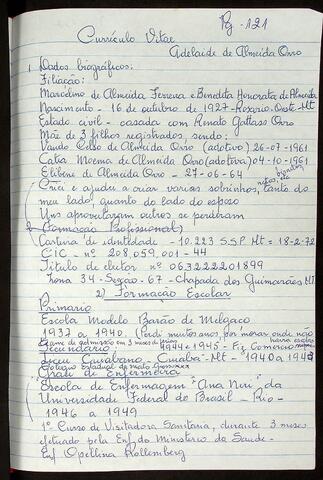 Pg - 121
Currículo Vitae
Adelaide de Almeida Orro
1) Dados biográficos:
Filiação:
Marcolino de Almeida Ferreira e Benedita Honorata de Almeida
Nascimento - 16 de outubro de 1927 - Rosario Oeste Mt
Estado civil - casada com Renato Gattass Orro
Mãe de 3 filhos registrados sendo:
Vando Celso de Almeida Orro (adotivo) 26-07-1961
Catia Moema de Almeida Orro (adotiva) 04-10-1961
Elibene de Almeida Orro - 27-06-64
Criei e ajudei a criar varios sobrinhos, netos, tanto do
meu lado, quanto do lado do esposo
Uns aproveitaram outros se perderam
(Formação Profissional)
Carteira de identidade - 10.223 S.S.P. Mt = 18-2-72
CIC - nº 208,059,001-44
Titulo de eleitor nº 063222201899
Zona 34 - Seção - 67 - Chapada dos Guimarães Mt.
2) Formação Escolar
Primario
Escola Modelo Barão de Melgaço
1937 a 1940. (Perdi muitos anos, por morar onde não
havia escolas
Exame de admissão em 3 meses de férias
Secundário 1944 e 1945 - Fiz Comercio
Liceu Cuiabano - Cuiabá - Mt - 1940 a 1943
Colegio Estadual de Mato Grosso
Grau de Enfermeira
Escola de Enfermagem "Ana Neri", da
Universidade Federal do Brasil - Rio -
1946 a 1949
1º Curso de Visitadora Sanitaria, durante 3 meses
efetuado pela Enf. do Ministério da Saude -
Enf Opellina Rollemberg